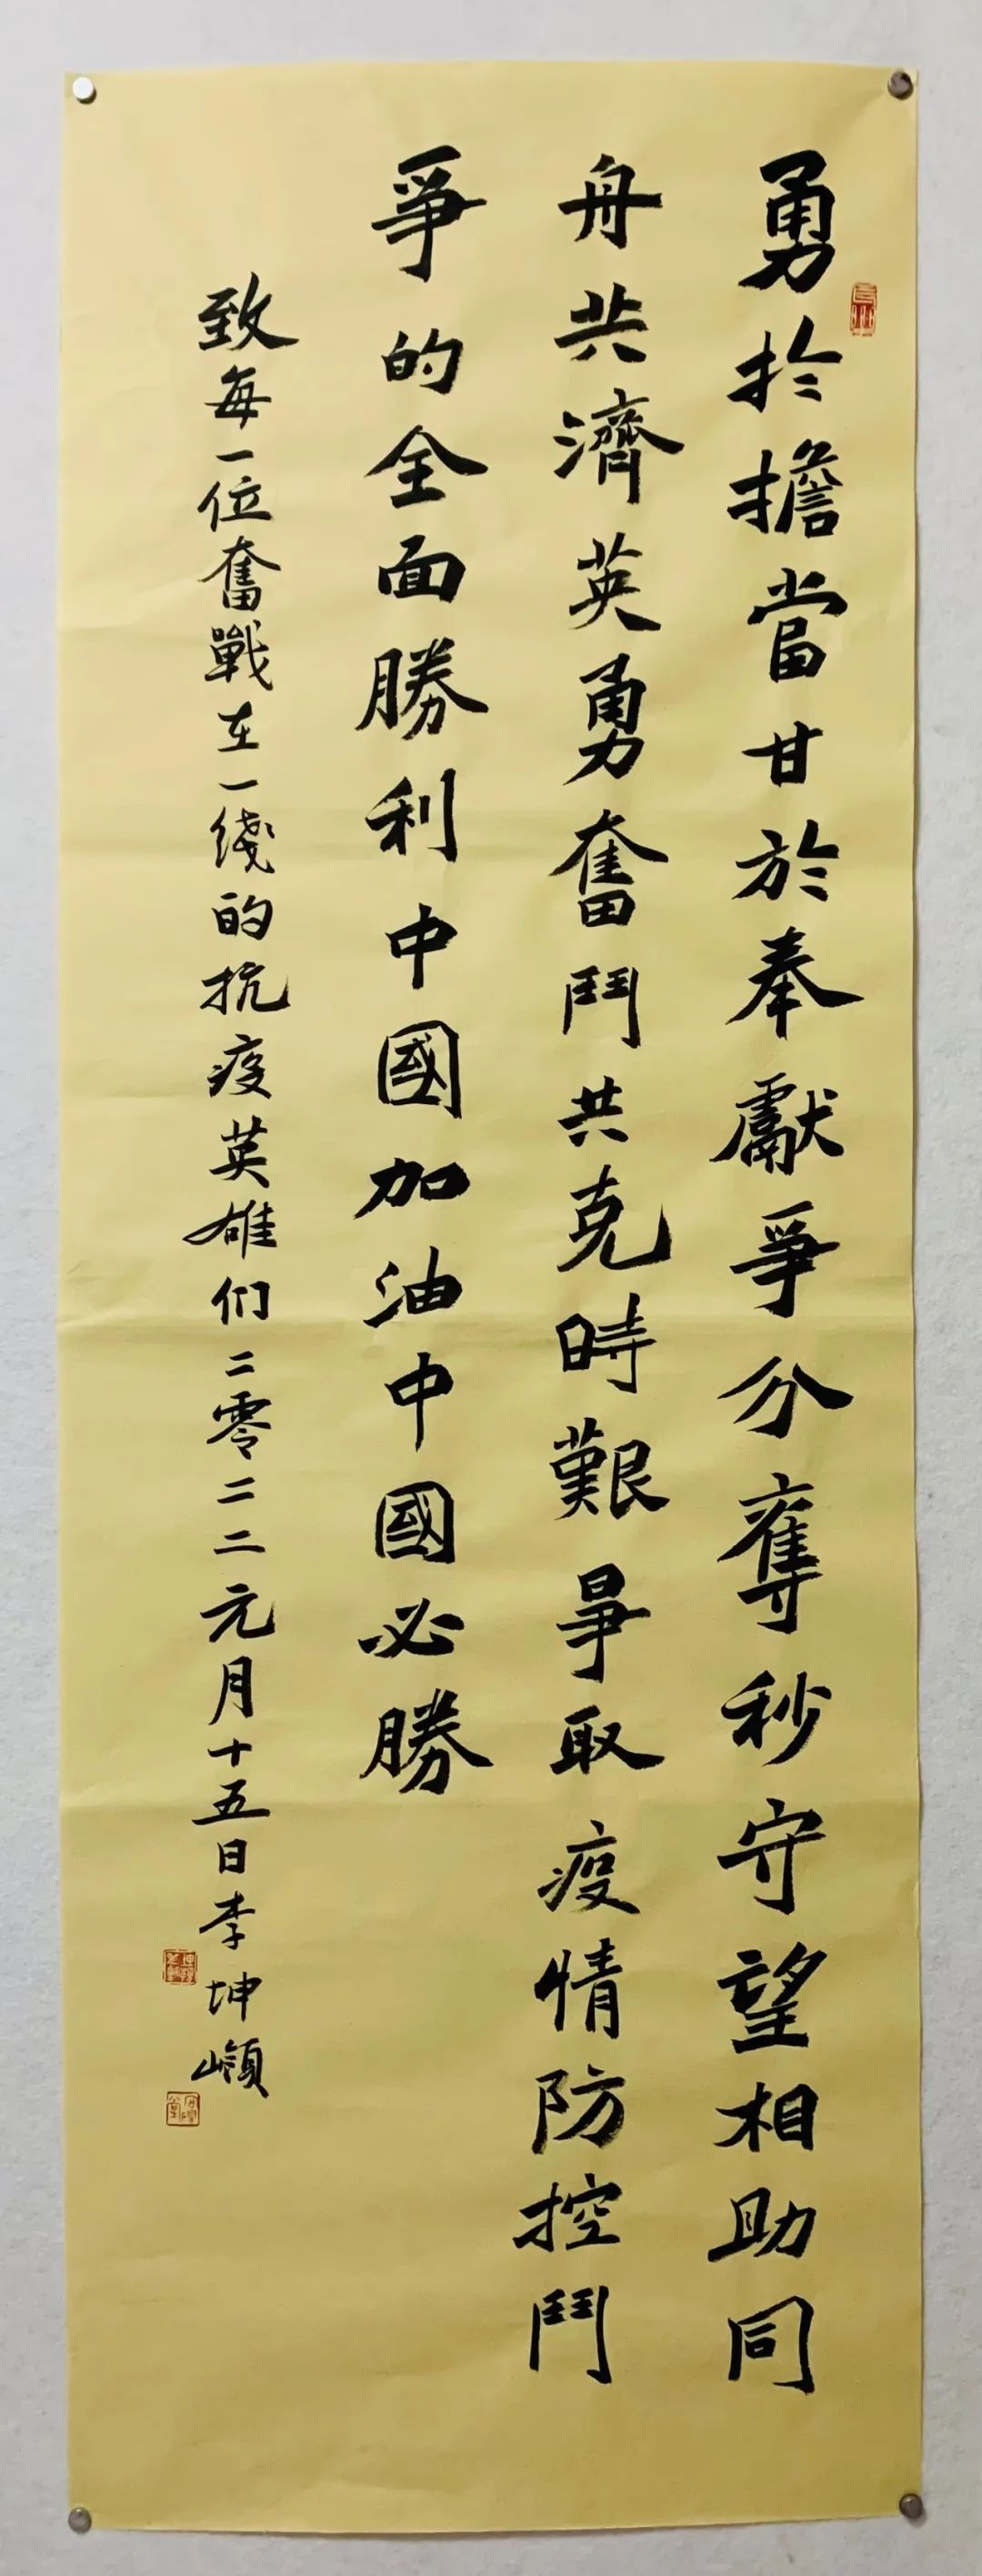 勇於擔當甘於奉獻爭分奪秒守望相助同
舟共濟英勇奮鬥共克時艱爭取疫情防控鬥
爭的全面勝利中國加油中國必勝
致每一位奮戰在一綫的抗疫英雄们二零二二元月十五日李坤